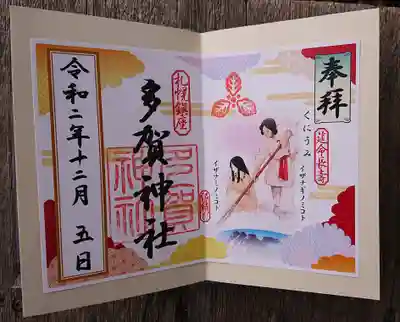 奉拝
延命長寿
くにうみ
イザナギノミコト
イザナミノミコト
札幌鎮座
多賀神社
多賀神社
令和二年十二月五日